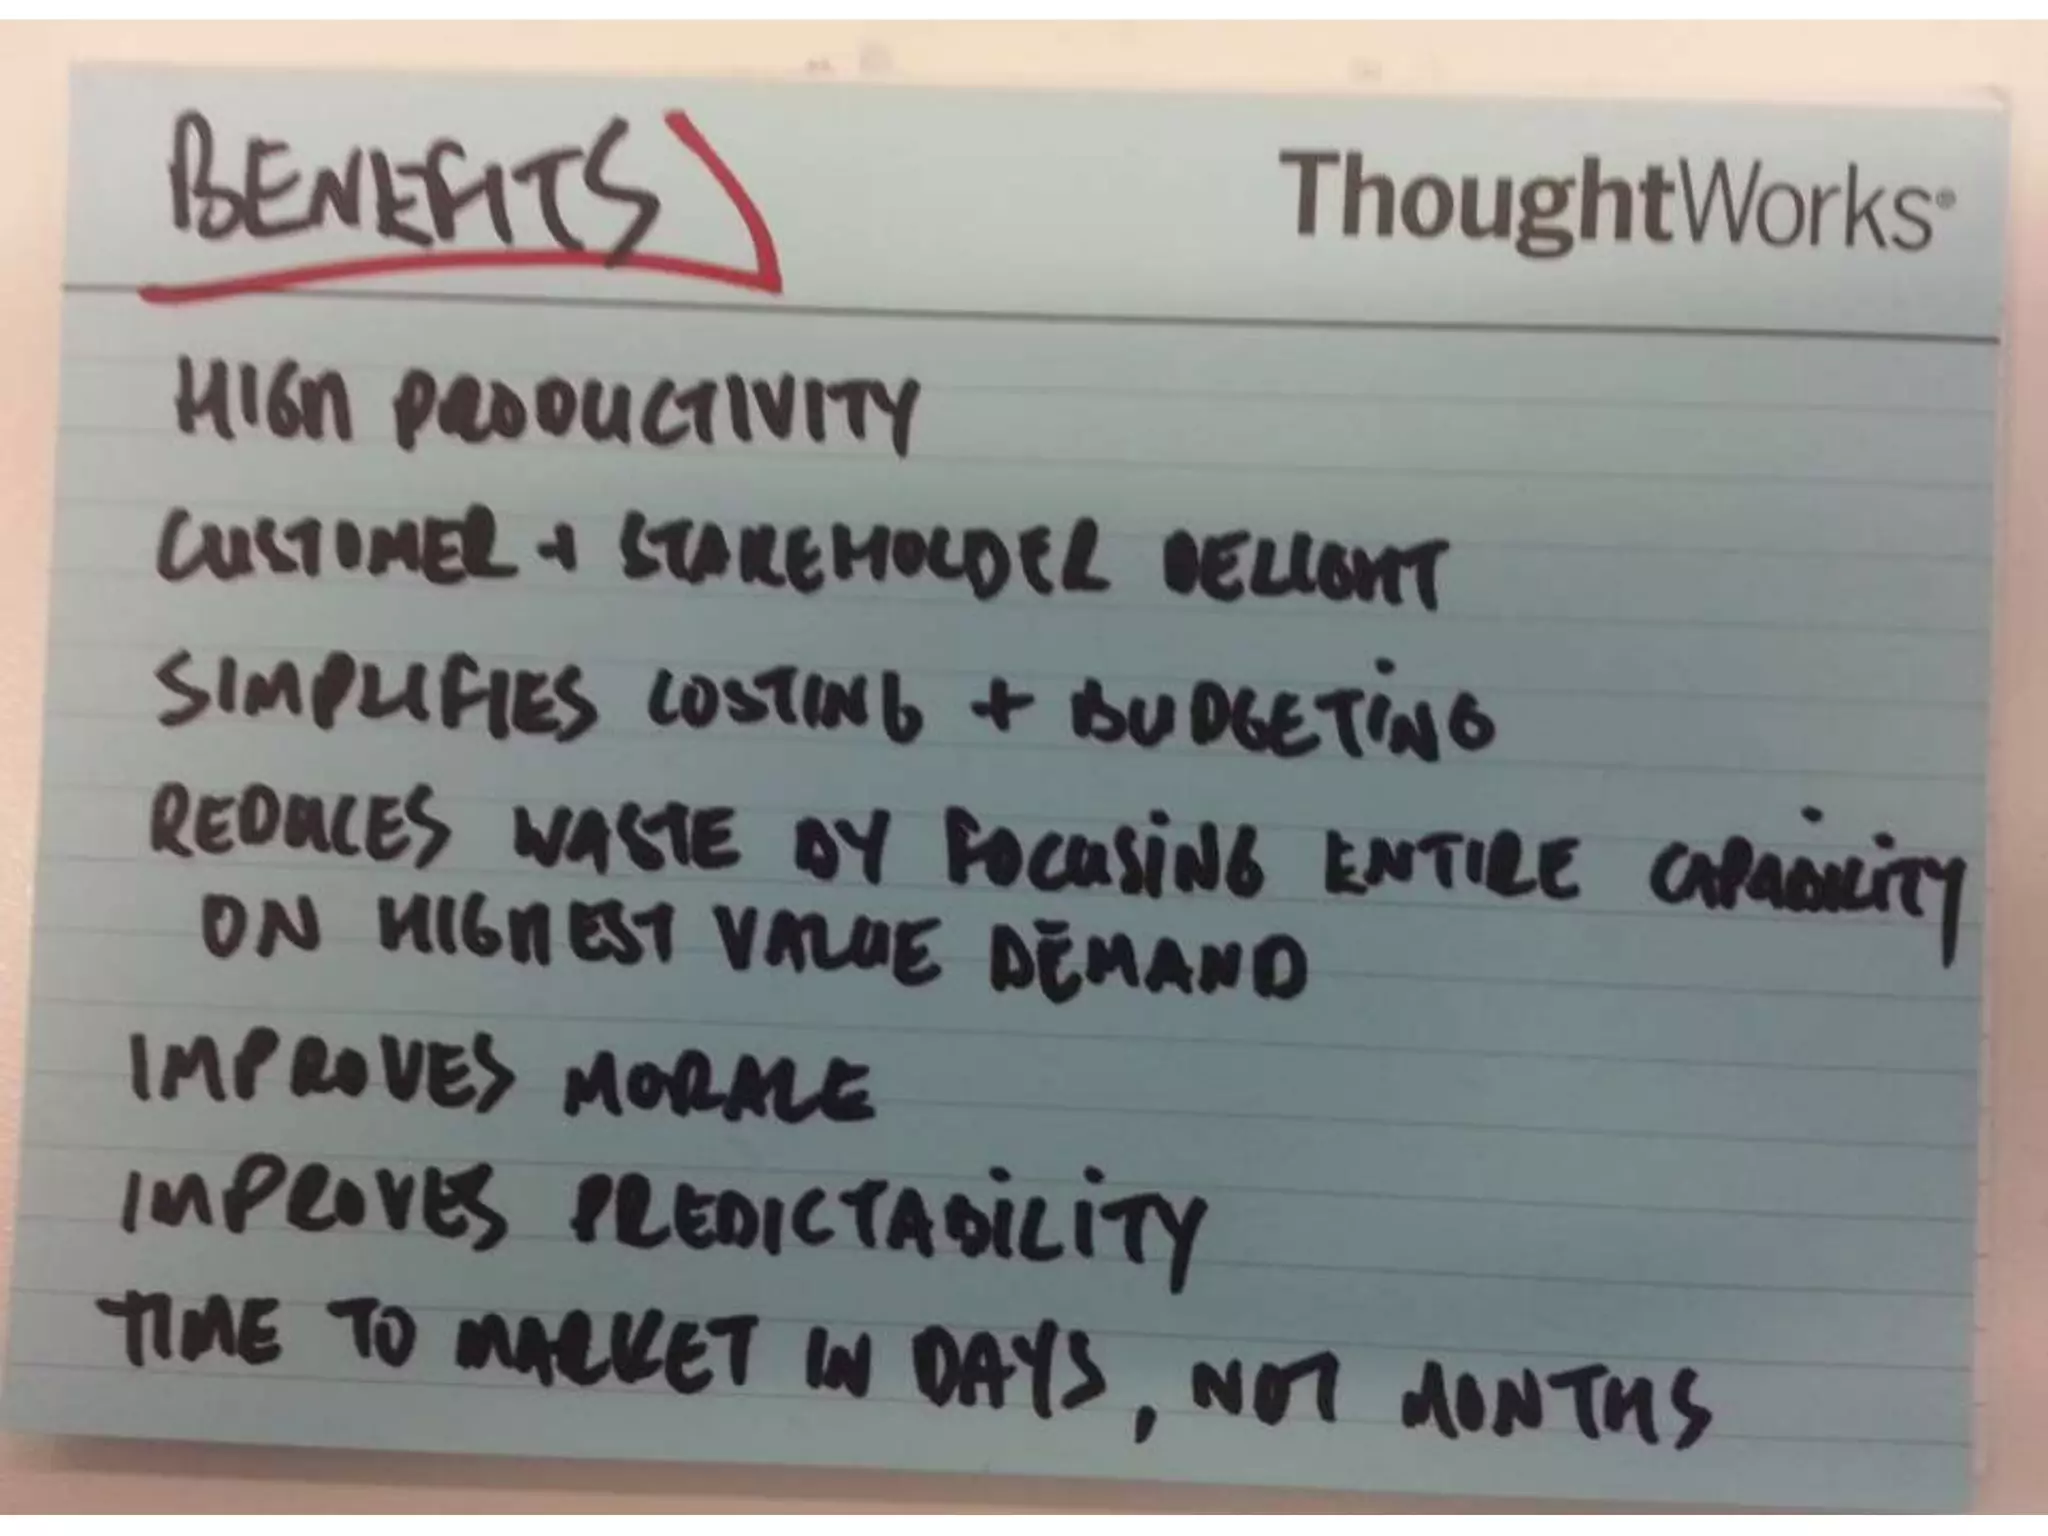 BENEFITS
ThoughtWorks®
HIGH PRODUCTIVITY
CUSTOMER + STAKEHOLDER DELIGHT
SIMPLIFIES COSTING + BUDGETING
REDUCES WASTE BY FOCUSING ENTIRE CAPABILITY
ON HIGHEST VALUE DEMAND
IMPROVES MORALE
IMPROVES PREDICTABILITY
TIME TO MARKET IN DAYS, NOT MONTHS